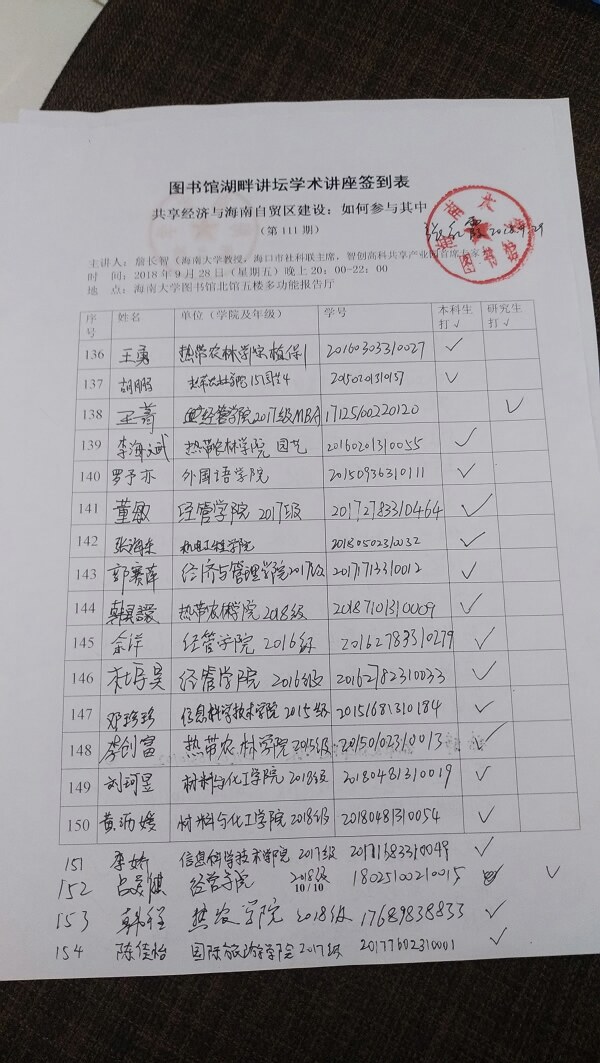 图书馆湖畔讲坛学术讲座签到表
共享经济与海南自贸区建设：如何参与其中
（第 111 期）
主讲人：詹长智（海南大学教授，海口市社科联主席，智创高科共享产业园首席专家）
时 间：2018 年 9 月 28 日（星期五）晚上 20：00-22：00
地 点：海南大学图书馆北馆五楼多功能报告厅
序号 姓名 单位（学院及年级） 学号 本科生打√ 研究生打√
136 王勇 热带农林学院植保1 20160303310027 ✓
137 胡鹏 20150201310157 ✓
138 王菁 经管学院2017级MBA 17125100220120 ✓
139 李海斌 热带农林学院 园艺 20160201310055 ✓
140 罗予亦 外国语学院 20150936310111 ✓
141 董敏 经管学院 2017级 20172783310464 ✓
142 张海东 机电工程学院 20180502310032 ✓
143 郭赛萍 经济与管理学院2017级 20171713310012 ✓
144 热带农林学院 2018级 20187101310009 ✓
145 佘洋 经管学院 2016级 20162783310279 ✓
146 杜厚昊 经管学院 2016级 20162782310033 ✓
147 邓珍珍 信息科学技术学院 2015级 20151681310184 ✓
148 李创富 热带农林学院2015级 20150102310013 ✓
149 刘珂昱 材料与化工学院 2018级 20180481310019 ✓
150 黄沥媛 材料与化工学院 2018级 20180481310054 ✓
151 李娇 信息科学技术学院 2017级 20171683310049 ✓
152 吕景棋 经管学院 2018级 18025100210015 ✓
10 / 10
153 韩程 热农学院 2018级 17689838833 ✓
154 陈佳怡 国际旅游学院 2017级 20177602310001 ✓